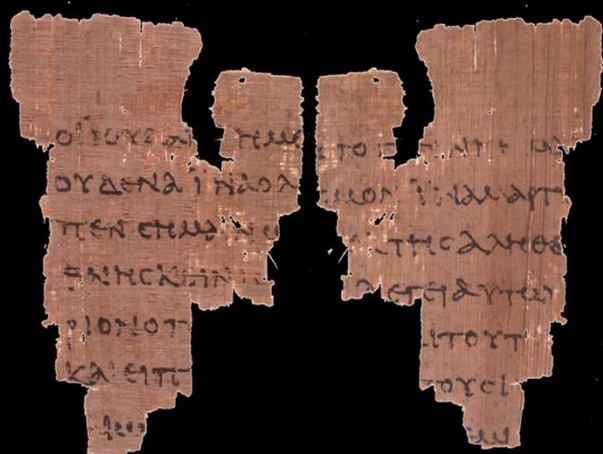 ΟΙ ΙΟΥΔΑΙ ΗΜΕ
ΟΥΔΕΝΑ ΪΝΑ Ο Λ
ΠΕΝ CΗΜΑΙΝΩ
ΘΝΗCΚΕΙΝ
ΡΙΟΝ Ο Π
ΚΑΙ ΕΙΠ
ΤΟ Γ ΕΝΝΗΜΑΙ
CΜΟΝ ΪΝΑ ΜΑΡΤΥ
ΤΗC ΑΛΗΘΕ
ΛΕΓΕΙ ΑΥΤΩ
ΑΙ ΤΟΥΤ
ΤΟΥC Ι
ΜΙ